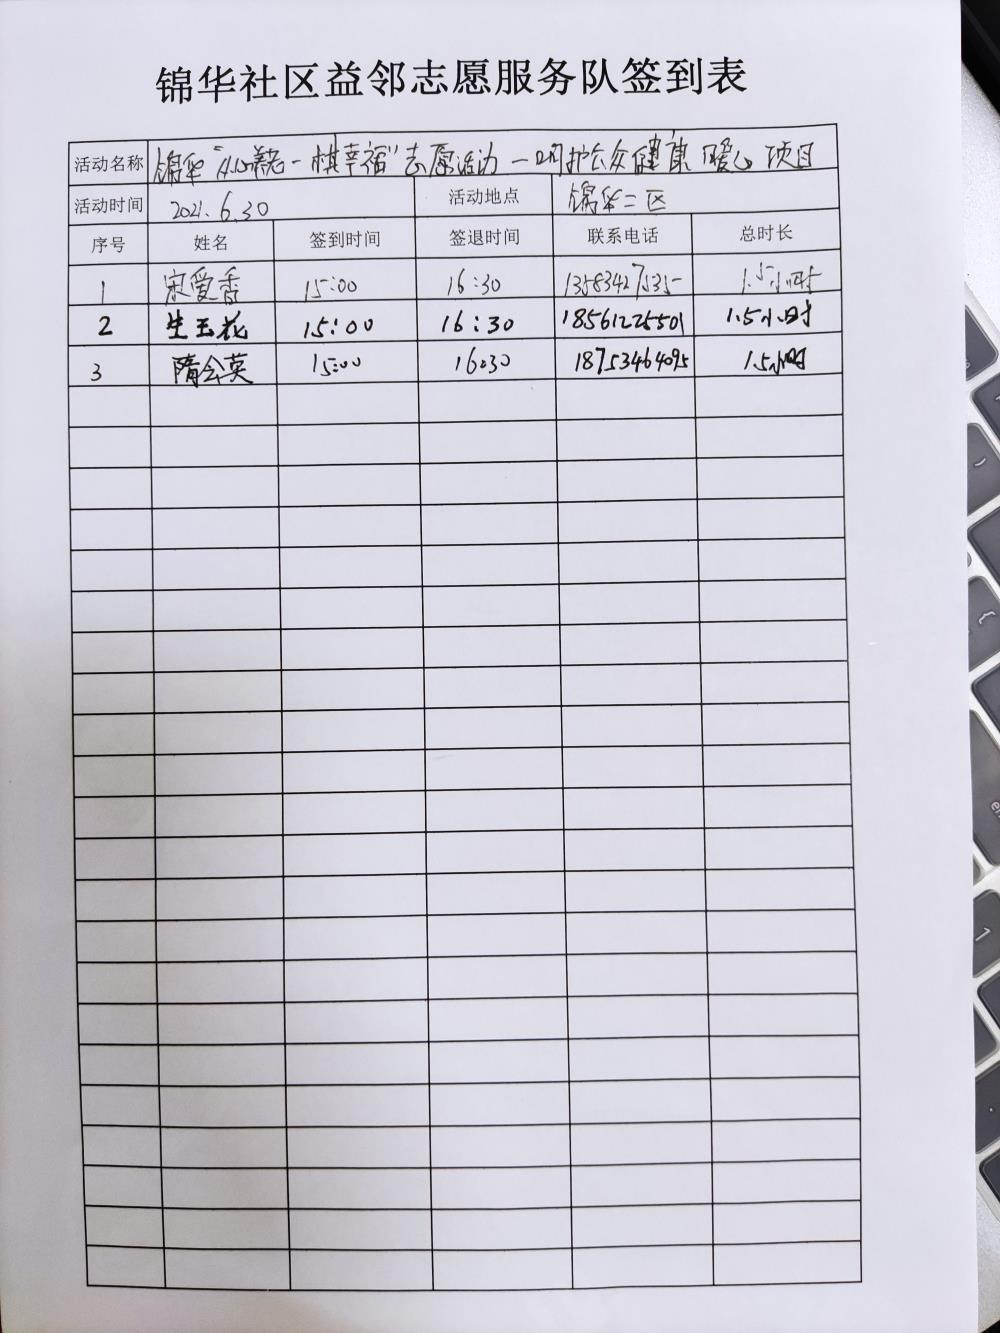 锦华社区益邻志愿服务队签到表
活动名称 锦华“ 一棋幸福”志愿活动—呵护公众健康 暖心 项目
活动时间 2021.6.30 活动地点 锦华二区
序号 姓名 签到时间 签退时间 联系电话 总时长
1 宋爱香 15:00 16:30 13583427535 1.5小时
2 生玉花 15:00 16:30 18561225501 1.5小时
3 隋会英 15:00 16:30 18753464095 1.5小时